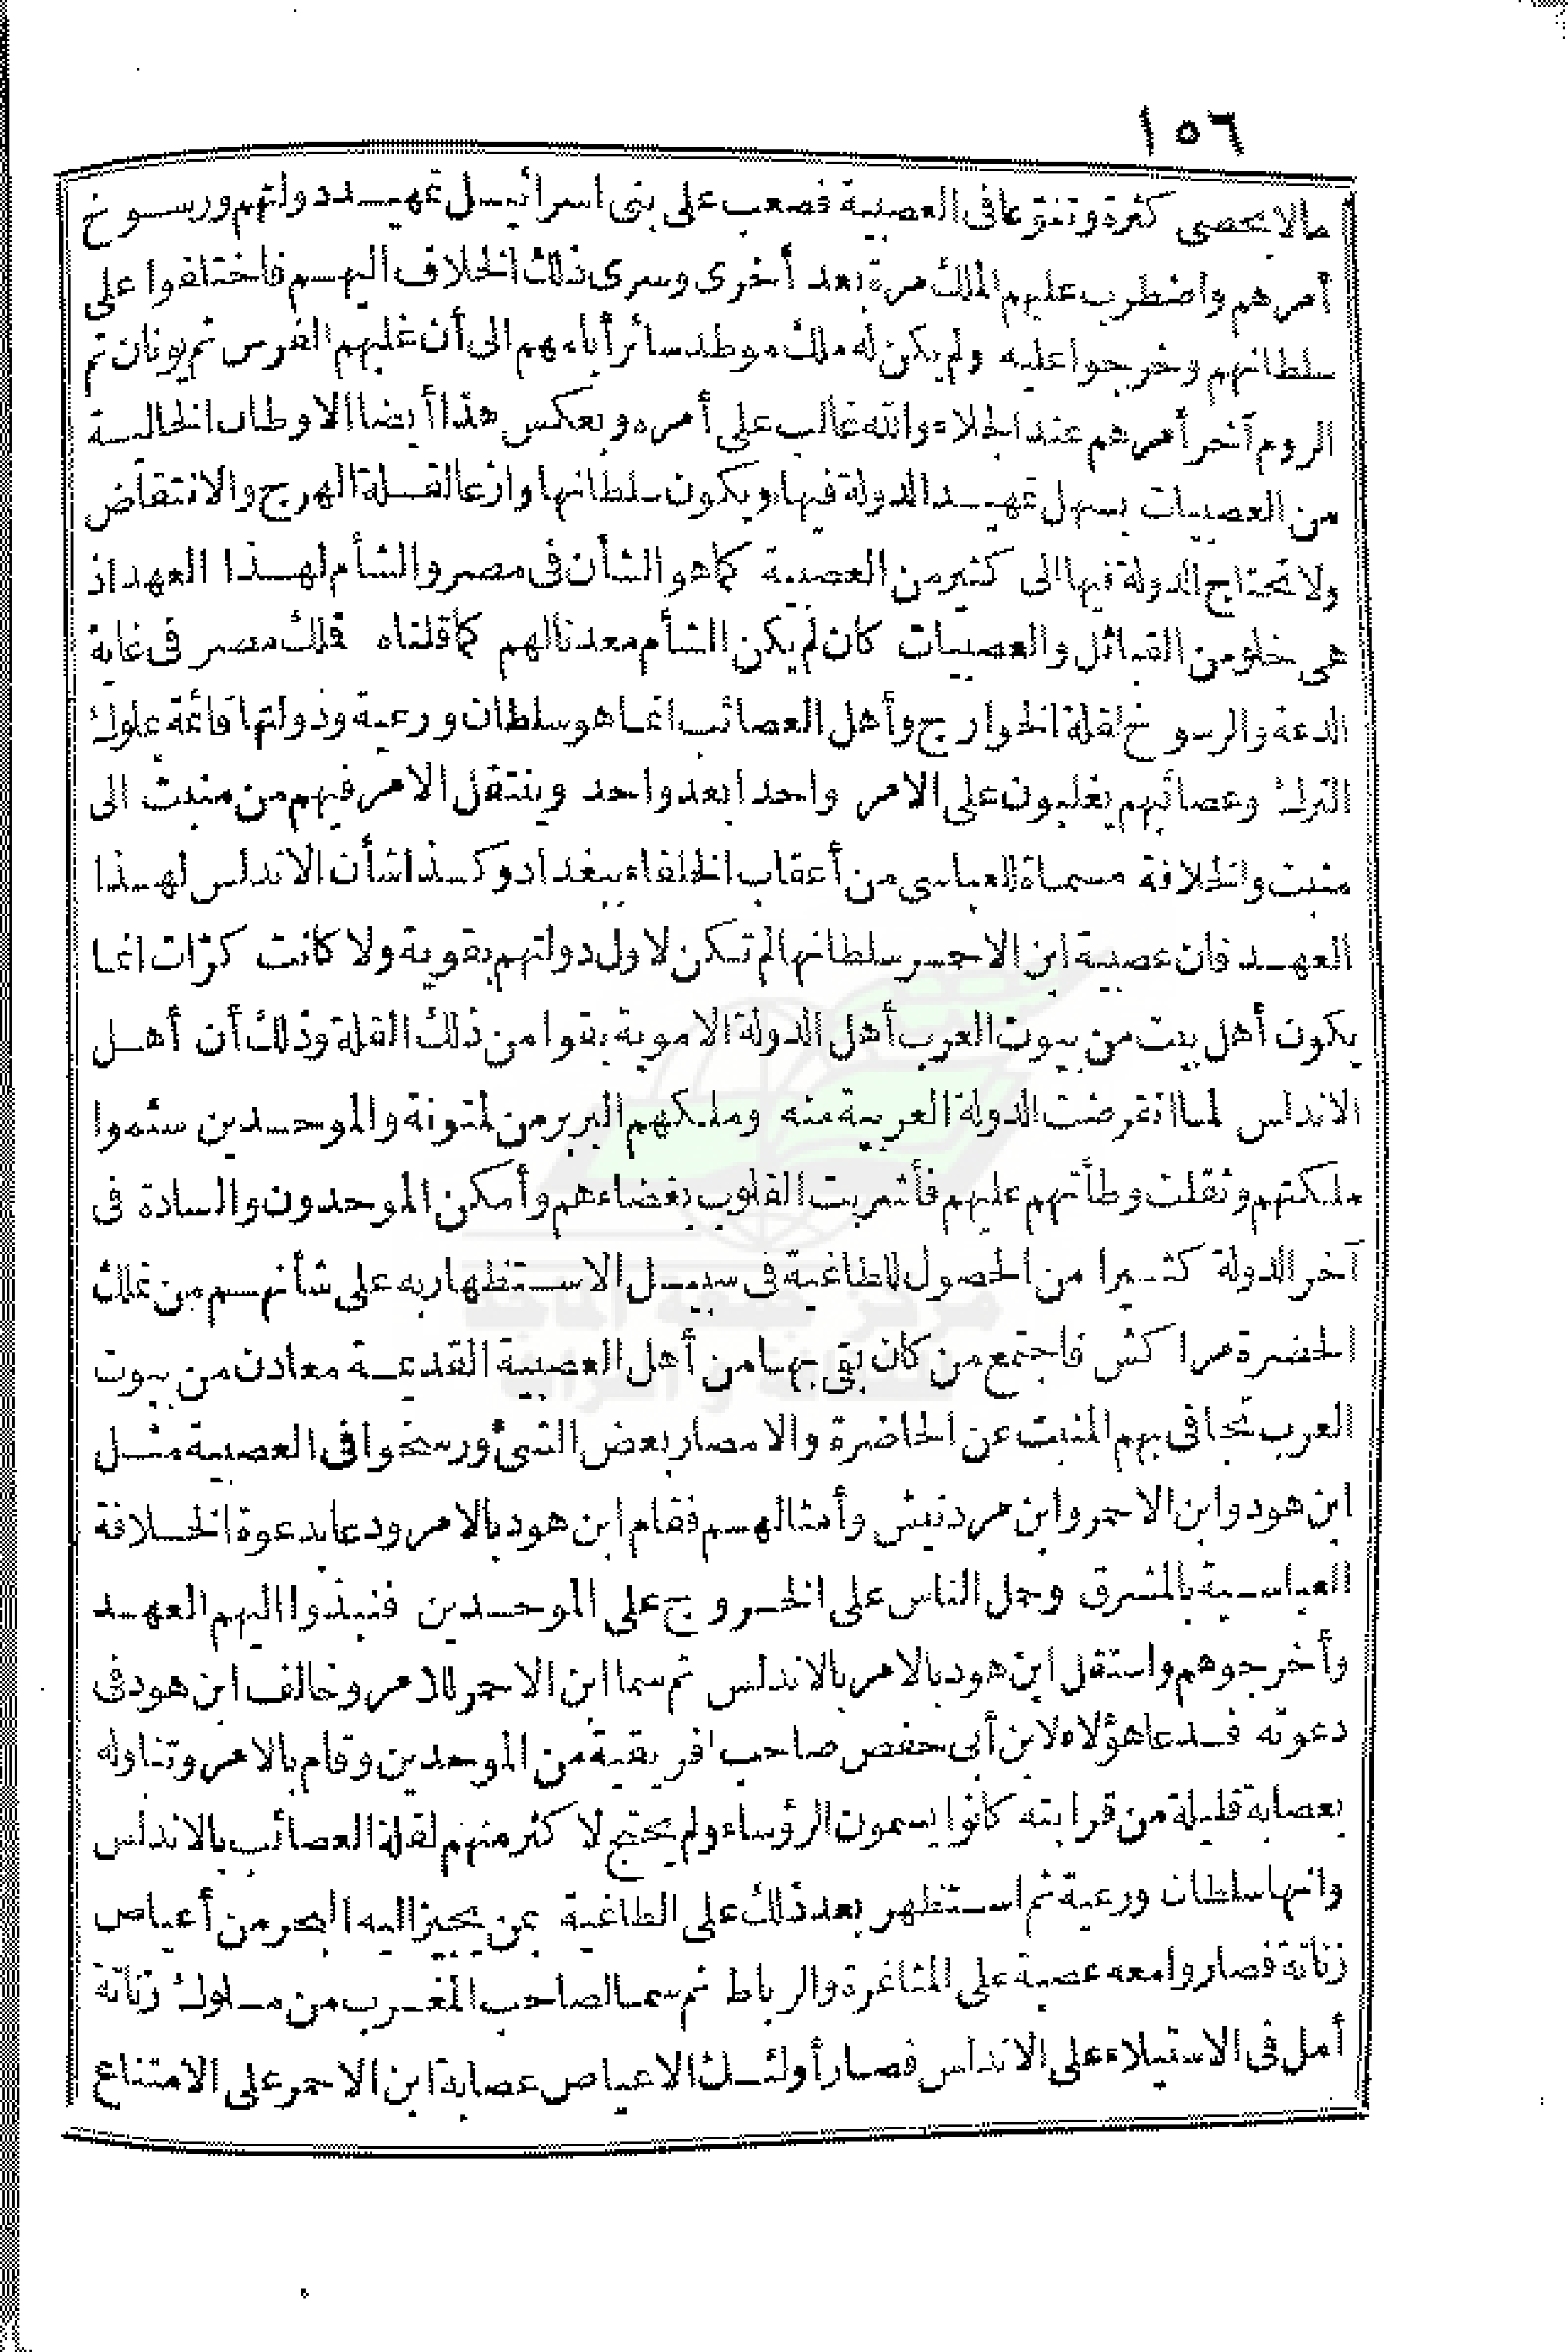 ١٥٦
مالا يحصى كثرة وتنوّعا فى العصبية فصعب على بنى اسرائيل تمهيد دولتهم ورسوخ
أمرهم واضطرب عليهم الملك مرة بعد أخرى وسرى ذلك الخلاف اليهم فاختلفوا على
سلطانهم وخرجوا عليه ولم يكن له ملك موطد سائر أيامهم الى أن غلبهم الفرس ثم يونان ثم
الروم آخر أمرهم عند الجلاء والله غالب على أمره وبعكس هذا أيضا الاوطان الخالية
من العصبيات يسهل تمهيد الدولة فيها ويكون سلطانها وازعا لقلة الهرج والانتقاض
ولا تحتاج الدولة فيها الى كثير من العصبية كما هو الشأن فى مصر والشأم لهذا العهد اذ
هى خلو من القبائل والعصبيات كان لم يكن الشأم معدنا لهم كما قلناه فملك مصر فى غاية
الدعة والرسوخ لقلة الخوارج وأهل العصائب انما هو سلطان ورعية ودولتها قائمة بملوك
الترك وعصائبهم يغلبون على الامر واحدا بعد واحد وينتقل الامر فيهم من منبت الى
منبت والخلافة مسماة للعباسى من أعقاب الخلفاء ببغداد وكذا شأن الاندلس لهذا
العهد فان عصبية ابن الاحمر سلطانها لم تكن لاول دولتهم بقوية ولا كانت كرّات انما
يكون أهل بيت من بيوت العرب أهل الدولة الاموية بقوا من ذلك القلة وذلك أن أهل
الاندلس لما انقرضت الدولة العربية منه وملكهم البربر من لمتونة والموحدين سئموا
ملكتهم وثقلت وطأتهم عليهم فأشربت القلوب بغضاءهم وأمكن الموحدون والسادة فى
آخر الدولة كثيرا من الحصول للطاغية فى سبيل الاستظهار به على شأنهم من تملك
الحضرة مراكش فاجتمع من كان بقى بها من أهل العصبية القديمة معادن من بيوت
العرب تجافى بهم المنبت عن الحاضرة والامصار بعض الشئ ورسخوا فى العصبية مثل
ابن هود وابن الاحمر وابن مردنيش وأمثالهم فقام ابن هود بالامر ودعا بدعوة الخلافة
العباسية بالمشرق وحمل الناس على الخروج على الموحدين فنبذوا اليهم العهد
وأخرجوهم واستقل ابن هود بالامر بالاندلس ثم سما ابن الاحمر للامر وخالف ابن هود فى
دعوته فدعا هؤلاء لابن أبى حفص صاحب افريقية من الموحدين وقام بالامر وتناوله
بعصابة قليلة من قرابته كانوا يسمون الرؤساء ولم يحتج لاكثر منهم لقلة العصائب بالاندلس
وانها سلطان ورعية ثم استظهر بعد ذلك على الطاغية بمن يجيز اليه البحر من أعياص
زناتة فصاروا معه عصبة على المثاغرة والرباط ثم سما لصاحب المغرب من ملوك زناتة
أمل فى الاستيلاء على الاندلس فصار أولئك الاعياص عصابة ابن الاحمر على الامتناع
مركز جمعة الماجد
للثقافة والتراث